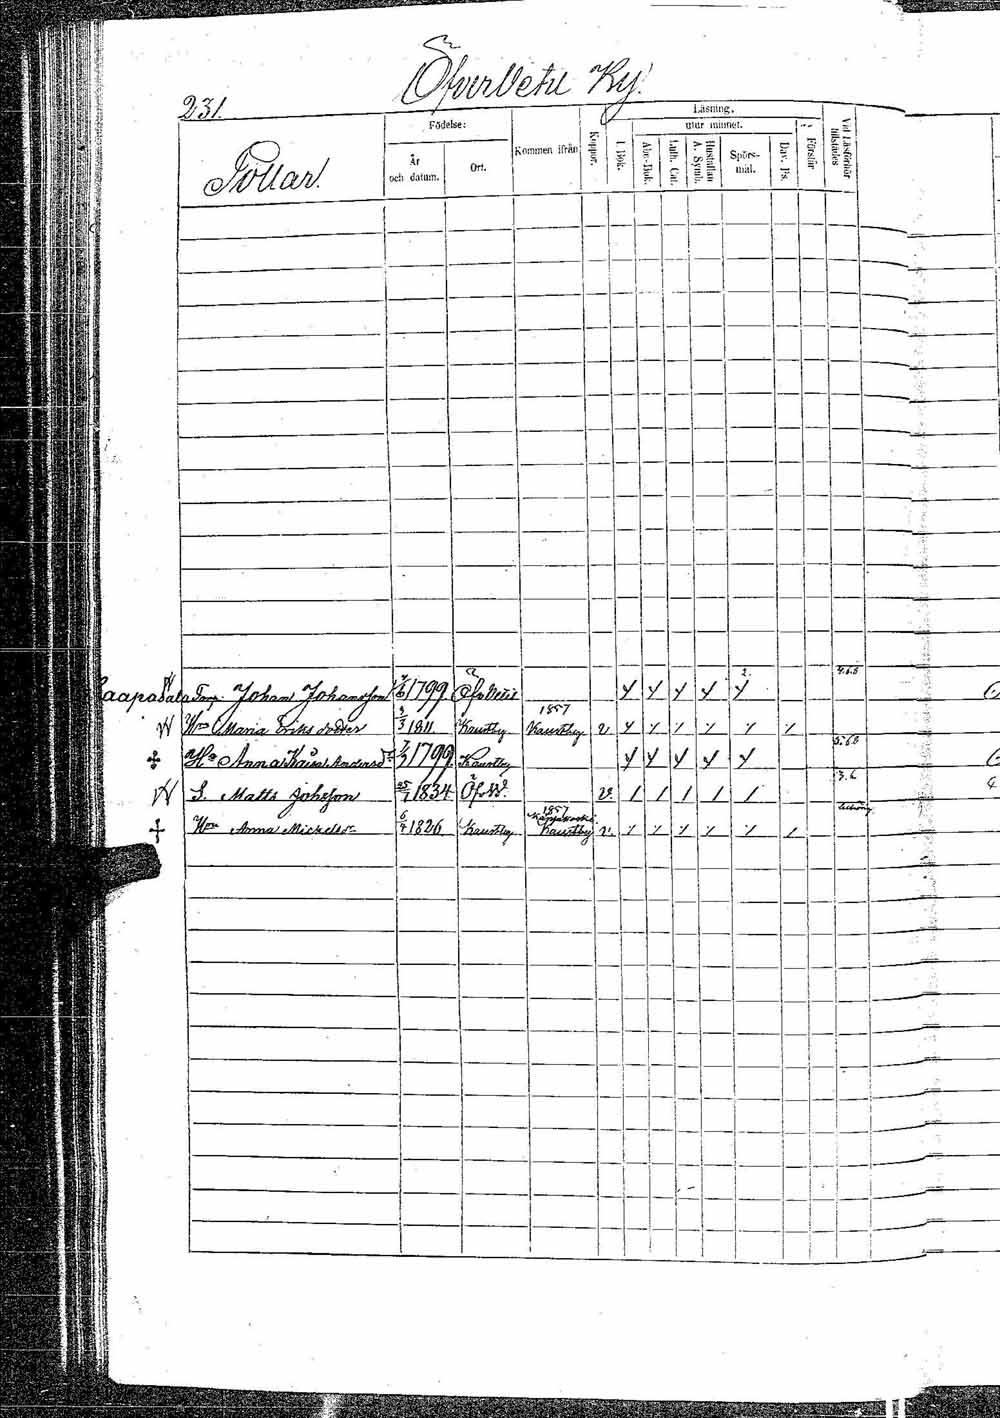 Öfvervetil Ky.
231.
Tollar.
Födelse:
År och datum.
Ort.
Kommen ifrån
Koppor.
Läsning.
I. Bok.
utur minnet.
Abc-Bok.
Luth. Cat.
Hustaflan A. Symb.
Spörs-mål.
Dav. Ps.
Förstår
Vid Läsförhör tillstädes
Torp. Johan Johansson 1799 Öfvervetil
Hru Maria Eriksdotter 9/3 1811 Kaustby 1857 Kaustby v.
Ha Anna Kaisa Andersdr 1799 Kaustby
S. Matts Johsson 1834 Öf.W. v.
Hru Anna Mickelsdr 6/4 1826 Kaustby 1857 Kaustby v.